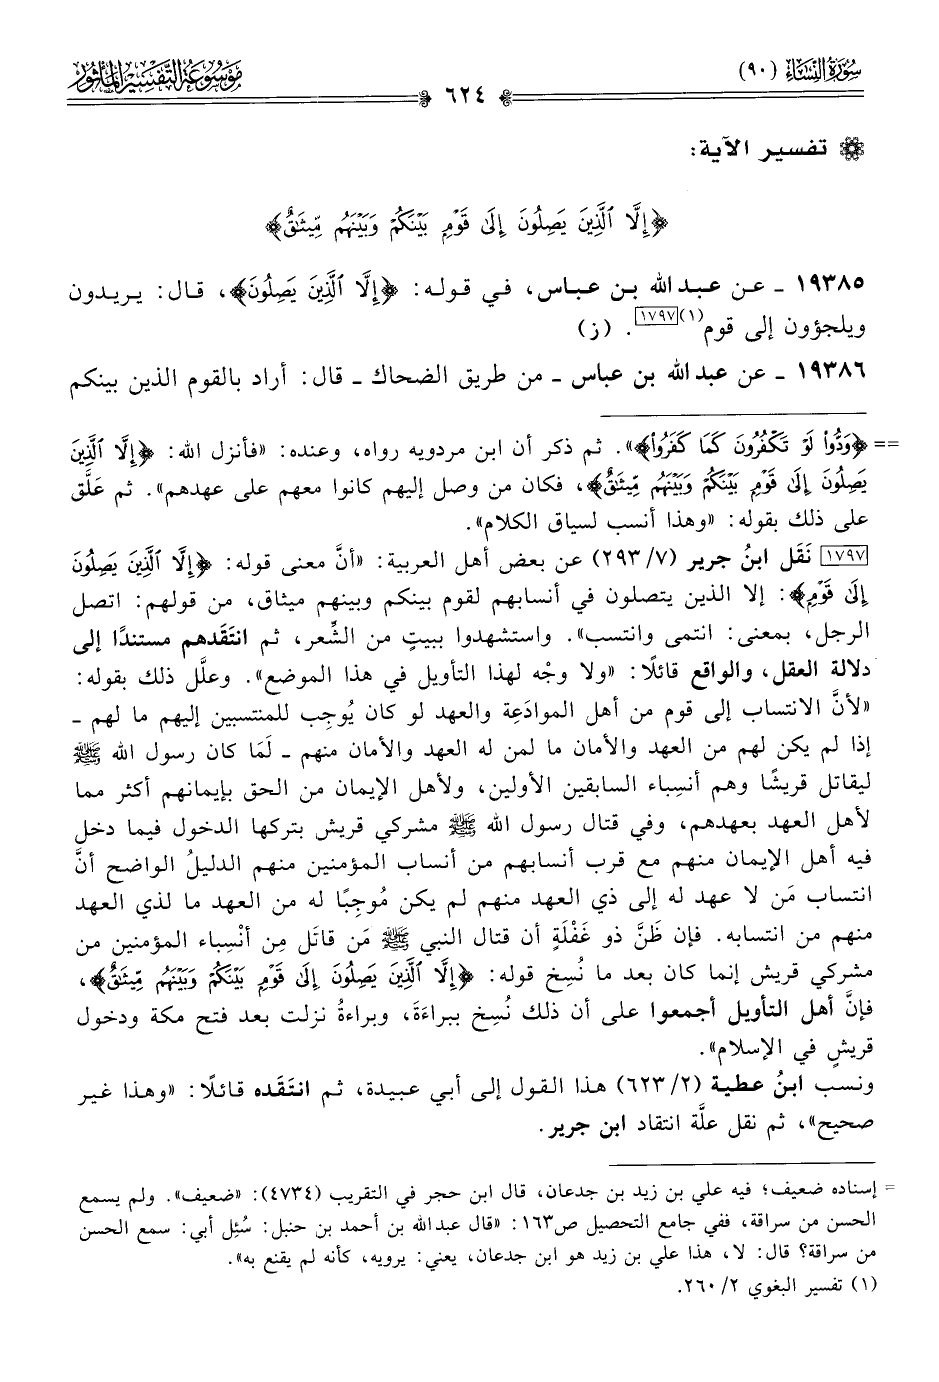 سورة النساء (٩٠)
موسوعة التفسير المأثور
٦٢٤
تفسير الآية:
﴿إِلَّا ٱلَّذِينَ يَصِلُونَ إِلَىٰ قَوْمِۭ بَيْنَكُمْ وَبَيْنَهُم مِّيثَٰقٌ﴾
١٩٣٨٥ ـ عن عبد الله بن عباس، في قوله: ﴿إِلَّا ٱلَّذِينَ يَصِلُونَ﴾، قال: يريدون
ويلجؤون إلى قوم(١)[١٧٩٧]. (ز)
١٩٣٨٦ ـ عن عبد الله بن عباس ـ من طريق الضحاك ـ قال: أراد بالقوم الذين بينكم
== ﴿وَدُّوا۟ لَوْ تَكْفُرُونَ كَمَا كَفَرُوا۟﴾». ثم ذكر أن ابن مردويه رواه، وعنده: «فأنزل الله: ﴿إِلَّا ٱلَّذِينَ
يَصِلُونَ إِلَىٰ قَوْمِۭ بَيْنَكُمْ وَبَيْنَهُم مِّيثَٰقٌ﴾، فكان من وصل إليهم كانوا معهم على عهدهم». ثم عَلَّق
على ذلك بقوله: «وهذا أنسب لسياق الكلام».
[١٧٩٧] نَقَل ابنُ جرير (٧/ ٢٩٣) عن بعض أهل العربية: «أنَّ معنى قوله: ﴿إِلَّا ٱلَّذِينَ يَصِلُونَ
إِلَىٰ قَوْمِۭ﴾: إلا الذين يتصلون في أنسابهم لقوم بينكم وبينهم ميثاق، من قولهم: اتصل
الرجل، بمعنى: انتمى وانتسب». واستشهدوا ببيتٍ من الشِّعر، ثم انتَقَدهم مستندًا إلى
دلالة العقل، والواقع قائلًا: «ولا وجْه لهذا التأويل في هذا الموضع». وعلَّل ذلك بقوله:
«لأنَّ الانتساب إلى قوم من أهل الموادَعِة والعهد لو كان يُوجِب للمنتسبين إليهم ما لهم ـ
إذا لم يكن لهم من العهد والأمان ما لمن له العهد والأمان منهم ـ لَمَا كان رسول الله ﷺ
ليقاتل قريشًا وهم أنسِباء السابقين الأولين، ولأهل الإيمان من الحق بإيمانهم أكثر مما
لأهل العهد بعهدهم، وفي قتال رسول الله ﷺ مشركي قريش بتركها الدخول فيما دخل
فيه أهل الإيمان منهم مع قرب أنسابهم من أنساب المؤمنين منهم الدليلُ الواضح أنَّ
انتساب مَن لا عهد له إلى ذي العهد منهم لم يكن مُوجِبًا له من العهد ما لذي العهد
منهم من انتسابه. فإن ظَنَّ ذو غَفْلَةٍ أن قتال النبي ﷺ مَن قاتَل مِن أنْسِباء المؤمنين من
مشركي قريش إنما كان بعد ما نُسِخ قوله: ﴿إِلَّا ٱلَّذِينَ يَصِلُونَ إِلَىٰ قَوْمِۭ بَيْنَكُمْ وَبَيْنَهُم مِّيثَٰقٌ﴾،
فإنَّ أهل التأويل أجمعوا على أن ذلك نُسِخ ببراءَةَ، وبراءةُ نزلت بعد فتح مكة ودخول
قريشٍ في الإسلام».
ونسب ابنُ عطية (٢/ ٦٢٣) هذا القول إلى أبي عبيدة، ثم انتَقَده قائلًا: «وهذا غير
صحيح»، ثم نقل علَّة انتقاد ابن جرير.
= إسناده ضعيف؛ فيه علي بن زيد بن جدعان، قال ابن حجر في التقريب (٤٧٣٤): «ضعيف». ولم يسمع
الحسن من سراقة، ففي جامع التحصيل ص١٦٣: «قال عبدالله بن أحمد بن حنبل: سُئِل أبي: سمع الحسن
من سراقة؟ قال: لا، هذا علي بن زيد هو ابن جدعان، يعني: يرويه، كأنه لم يقنع به».
(١) تفسير البغوي ٢/ ٢٦٠.